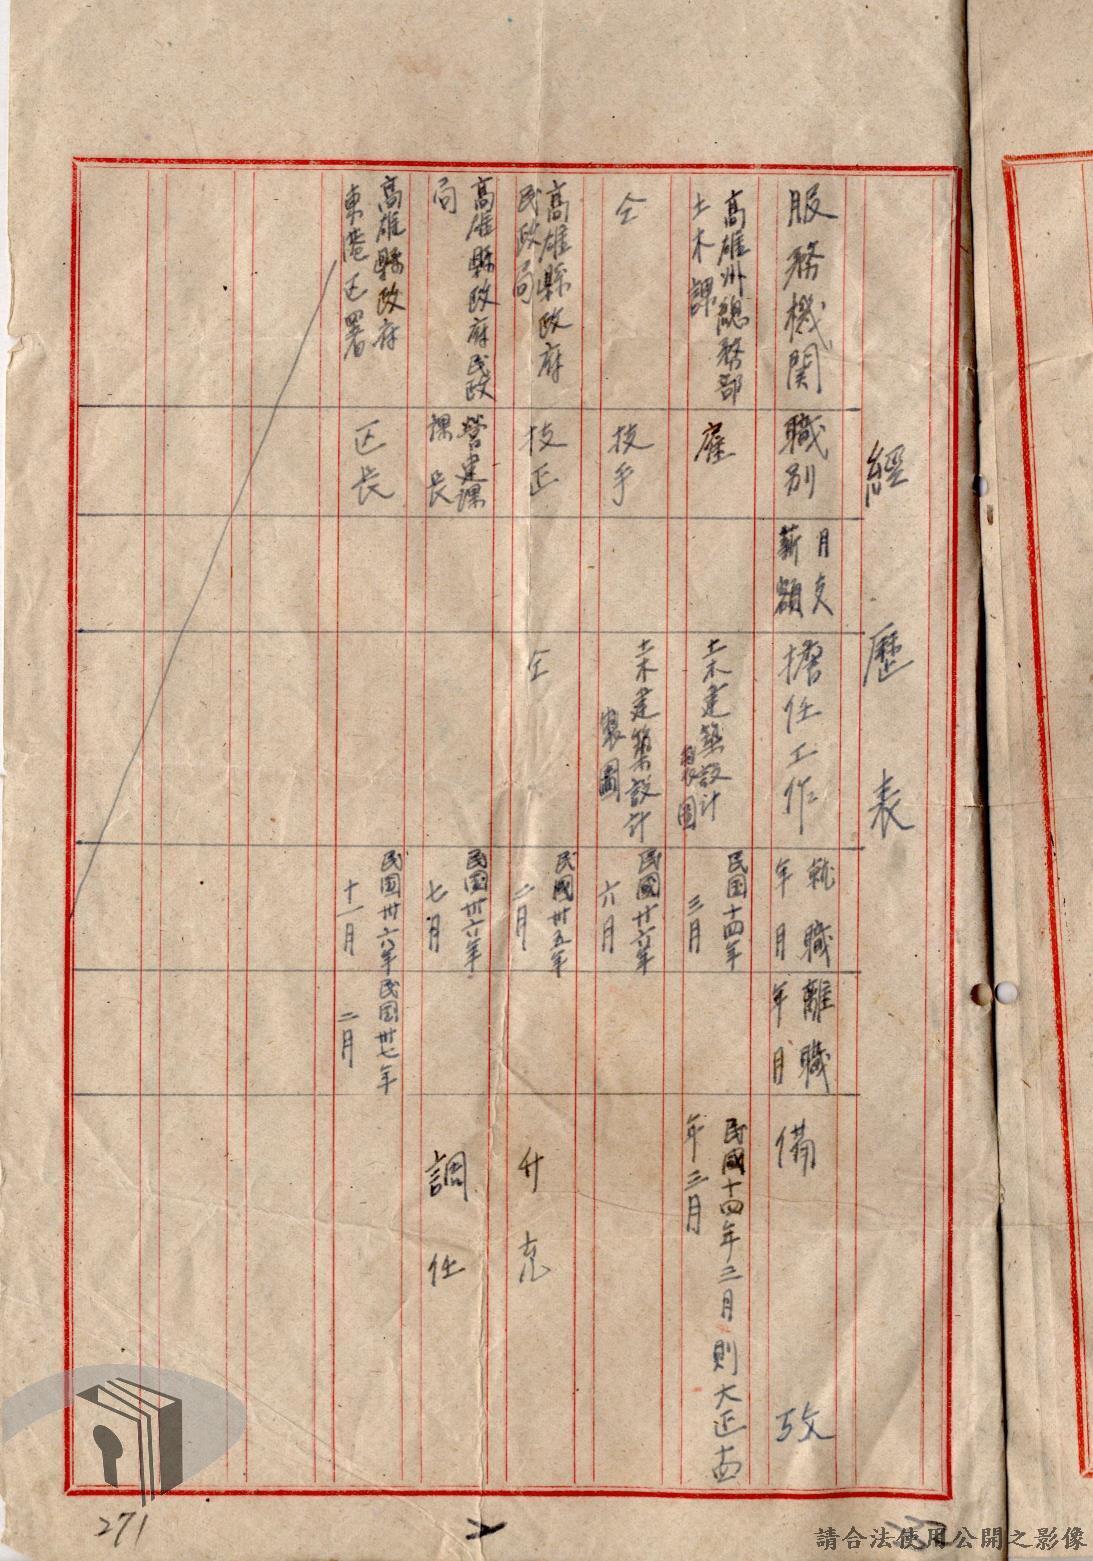 經歷表
服務機関
職別
月支
薪額
擔任工作
就職
年月
離職
年月
備 攷
高雄州總務部
土木課
雇
土木建築設計
製圖
民国十四年
三月
民國十四年三月則大正十四
年三月
仝
技手
土木建築設計
製圖
民國廿六年
六月
高雄縣政府
民政局
技正
仝
民國卅五年
二月
升充
高雄縣政府民政
局
營建課
課長
民国卅六年
七月
調任
高雄縣政府
東港区署
区長
民国卅六年
十一月
民国卅七年
二月
271
請合法使用公開之影像